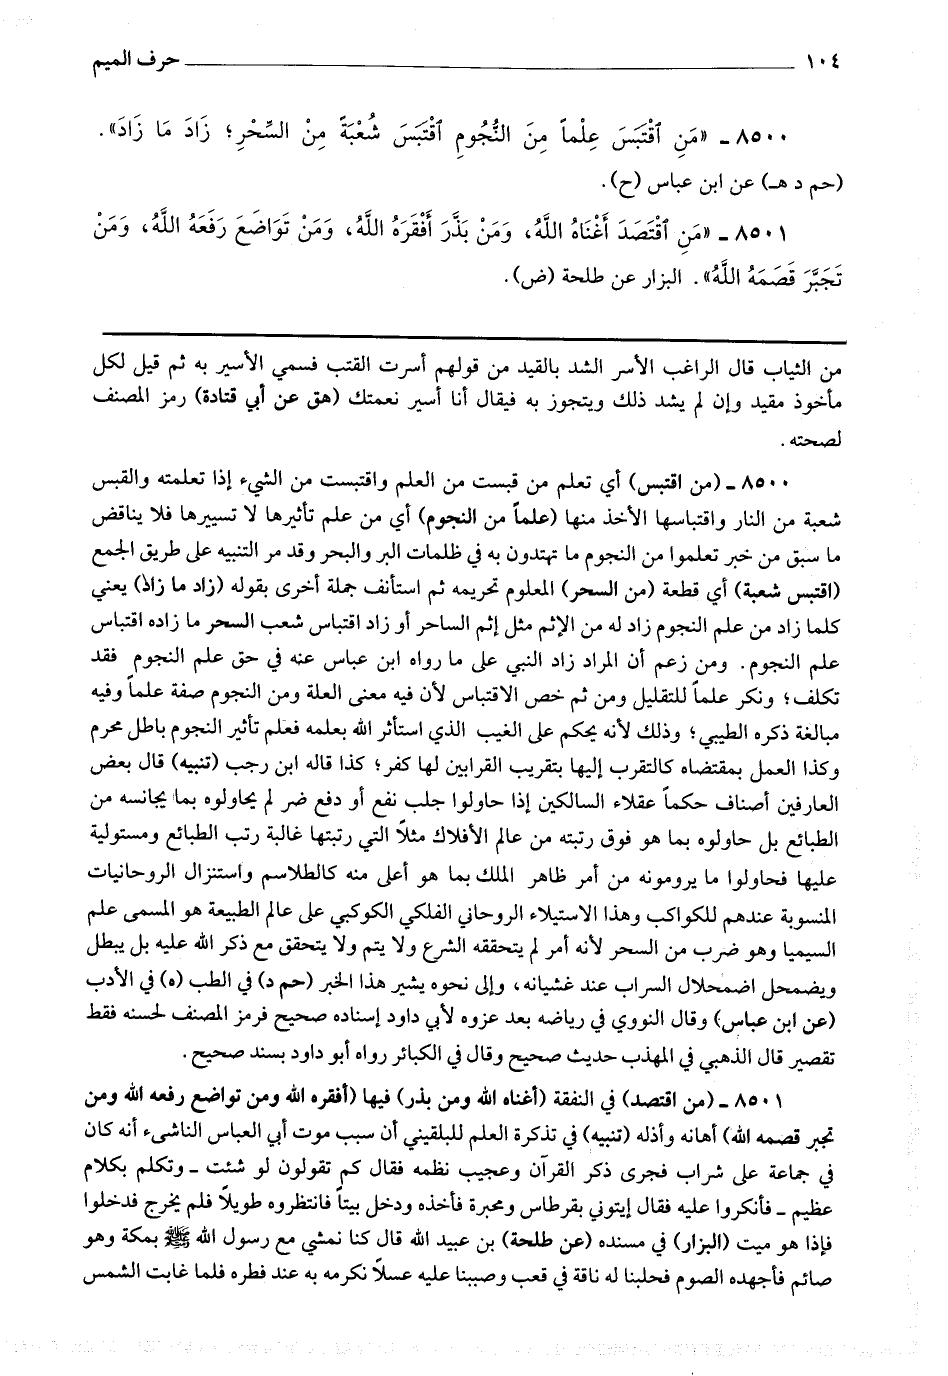 ١٠٤ حرف الميم
٨٥٠٠ ـ «مَنِ ٱقْتَبَسَ عِلْماً مِنَ النُّجُومِ ٱقْتَبَسَ شُعْبَةً مِنْ السِّحْرِ؛ زَادَ مَا زَادَ».
(حم د هـ) عن ابن عباس (ح).
٨٥٠١ ـ «مَنِ ٱقْتَصَدَ أَغْنَاهُ اللَّهُ، وَمَنْ بَذَّرَ أَفْقَرَهُ اللَّهُ، وَمَنْ تَوَاضَعَ رَفَعَهُ اللَّهُ، وَمَنْ
تَجَبَّرَ قَصَمَهُ اللَّهُ». البزار عن طلحة (ض).
من الثياب قال الراغب الأسر الشد بالقيد من قولهم أسرت القتب فسمي الأسير به ثم قيل لكل
مأخوذ مقيد وإن لم يشد ذلك ويتجوز به فيقال أنا أسير نعمتك (هق عن أبي قتادة) رمز المصنف
لصحته.
٨٥٠٠ ـ (من اقتبس) أي تعلم من قبست من العلم واقتبست من الشيء إذا تعلمته والقبس
شعبة من النار واقتباسها الأخذ منها (علماً من النجوم) أي من علم تأثيرها لا تسييرها فلا يناقض
ما سبق من خبر تعلموا من النجوم ما تهتدون به في ظلمات البر والبحر وقد مر التنبيه على طريق الجمع
(اقتبس شعبة) أي قطعة (من السحر) المعلوم تحريمه ثم استأنف جملة أخرى بقوله (زاد ما زاد) يعني
كلما زاد من علم النجوم زاد له من الإثم مثل إثم الساحر أو زاد اقتباس شعب السحر ما زاده اقتباس
علم النجوم. ومن زعم أن المراد زاد النبي على ما رواه ابن عباس عنه في حق علم النجوم فقد
تكلف؛ ونكر علماً للتقليل ومن ثم خص الاقتباس لأن فيه معنى العلة ومن النجوم صفة علماً وفيه
مبالغة ذكره الطيبي؛ وذلك لأنه يحكم على الغيب الذي استأثر الله بعلمه فعلم تأثير النجوم باطل محرم
وكذا العمل بمقتضاه كالتقرب إليها بتقريب القرابين لها كفر؛ كذا قاله ابن رجب (تنبيه) قال بعض
العارفين أصناف حكماً عقلاء السالكين إذا حاولوا جلب نفع أو دفع ضر لم يحاولوه بما يجانسه من
الطبائع بل حاولوه بما هو فوق رتبته من عالم الأفلاك مثلاً التي رتبتها غالبة رتب الطبائع ومستولية
عليها فحاولوا ما يرومونه من أمر ظاهر الملك بما هو أعلى منه كالطلاسم واستنزال الروحانيات
المنسوبة عندهم للكواكب وهذا الاستيلاء الروحاني الفلكي الكوكبي على عالم الطبيعة هو المسمى علم
السيميا وهو ضرب من السحر لأنه أمر لم يتحققه الشرع ولا يتم ولا يتحقق مع ذكر الله عليه بل يبطل
ويضمحل اضمحلال السراب عند غشيانه، وإلى نحوه يشير هذا الخبر (حم د) في الطب (ه) في الأدب
(عن ابن عباس) وقال النووي في رياضه بعد عزوه لأبي داود إسناده صحيح فرمز المصنف لحسنه فقط
تقصير قال الذهبي في المهذب حديث صحيح وقال في الكبائر رواه أبو داود بسند صحيح.
٨٥٠١ ـ (من اقتصد) في النفقة (أغناه الله ومن بذر) فيها (أفقره الله ومن تواضع رفعه الله ومن
تجبر قصمه الله) أهانه وأذله (تنبيه) في تذكرة العلم للبلقيني أن سبب موت أبي العباس الناشىء أنه كان
في جماعة على شراب فجرى ذكر القرآن وعجيب نظمه فقال كم تقولون لو شئت ـ وتكلم بكلام
عظيم ـ فأنكروا عليه فقال إيتوني بقرطاس ومحبرة فأخذه ودخل بيتاً فانتظروه طويلاً فلم يخرج فدخلوا
فإذا هو ميت (البزار) في مسنده (عن طلحة) بن عبيد الله قال كنا نمشي مع رسول الله ﷺ بمكة وهو
صائم فأجهده الصوم فحلبنا له ناقة في قعب وصببنا عليه عسلاً نكرمه به عند فطره فلما غابت الشمس